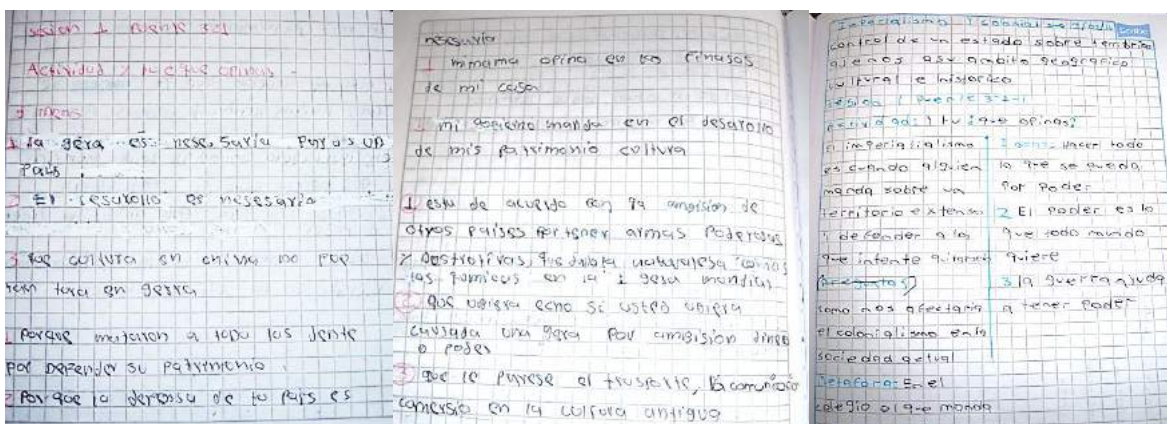 sesion 1 Puente 3-2-1
Actividad 1 tu que opinas
3 ideas
1 la gera es nesesaria por us un
Pais
2 El desarollo es nesesario
3 la cultura en china no
1 porque mataron a todo las Jente
por defender su patrimonio
2 Por que la defensa de tu pais es
nesesaria
1 mi mama opina en las finasas
de mi casa
2 mi gobierno manda en el desarollo
de mis patrimonio cultura
1 esta de acuerdo con la ambision de
otros paises por tener armas Poderosas
y destrotivas, que
las en la 1 gera mundial
2 que ubiera echo si usted ubiera
causada una gera por ambision dinero
o poder
3 que le parese el trasporte, la comunicacio
comersio en la cultura antigua
Imperialismo Y colonialismo
control de un estado sobre
ajenos a su ambito geografico
cultural e historico
sesion 1 Puente 3-2-1
actividad: 1 tu ¿que opinas?
El imperialialismo
es cuando alguien
manda sobre un
territorio extenso
y defender a los
que intente
Preguntas
como nos afectaria
el colonialismo en la
sociedad actual
Metafora: En el
colegio el que manda
1 Hacer todo
lo que se pueda
Por Poder
2 El poder es lo
que todo mundo
quiere
3 la guerra ayuda
a tener Poder